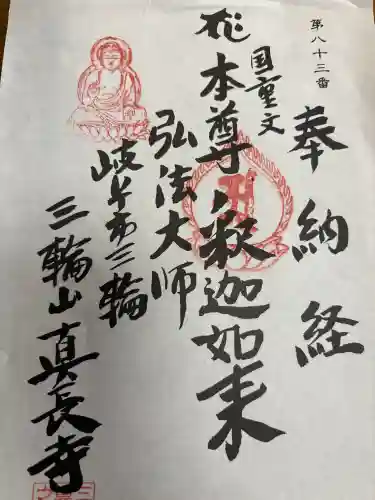 第八十三番
奉納経
国重文
本尊釈迦如来
弘法大師
岐阜市三輪
三輪山真長寺